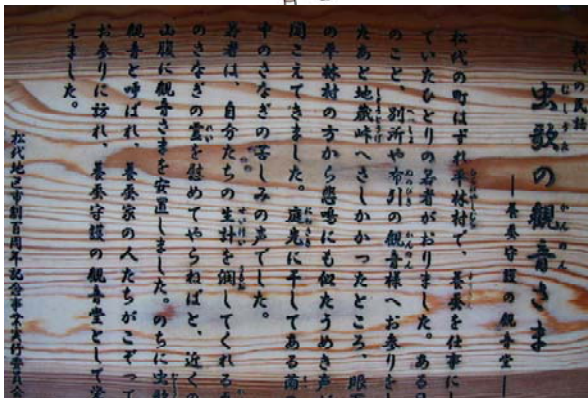 松代の民話
虫歌の観音さま
―養蚕守護の観音堂―
松代の町はずれ平林村で、養蚕を仕事にし
ていたひとりの若者がおりました。ある日
のこと、別所や布引の観音様へお参りをし
たあと地蔵峠へさしかかったところ、眼下
の平林村の方から悲鳴にも似たうめき声が
聞こえてきました。庭先に干してある繭の
中のさなぎの苦しみの声でした。
若者は、自分たちの生計を潤してくれる
のさなぎの霊を慰めてやらねばと、近くの
山腹に観音さまを安置しました。のちに虫歌
観音と呼ばれ、養蚕家の人たちがこぞって
お参りに訪れ、養蚕守護の観音堂として栄
えました。
松代地区市制百周年記念事業実行委員会